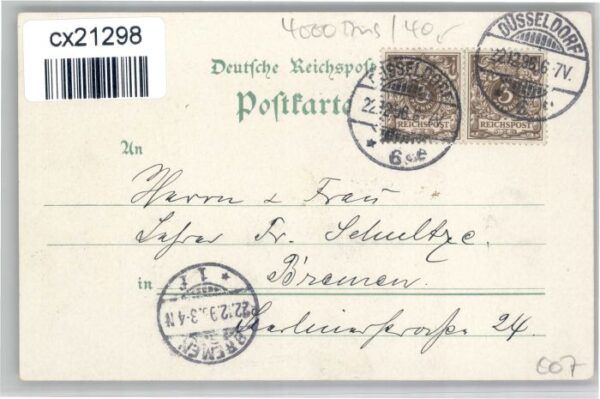 cx21298
4000 Düs / 40,-
Deutsche Reichspost
Postkarte
DÜSSELDORF
22.12.96.6-7V.
6
DÜSSELDORF
22.12.96.6-7V.
6
REICHSPOST
3
REICHSPOST
An
Herrn & Frau
Lehrer Fr. Schultze.
in Bremen.
Berlinerstraße 24.
BREMEN
22.12.96.3-4N
007